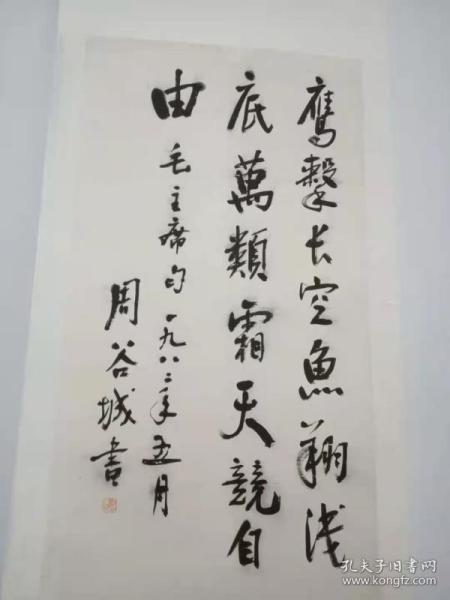 鹰擊长空魚翔浅
底萬類霜天競自
由
毛主席句一九八二年五月
周谷城書
孔夫子旧书网
www.kongfz.com